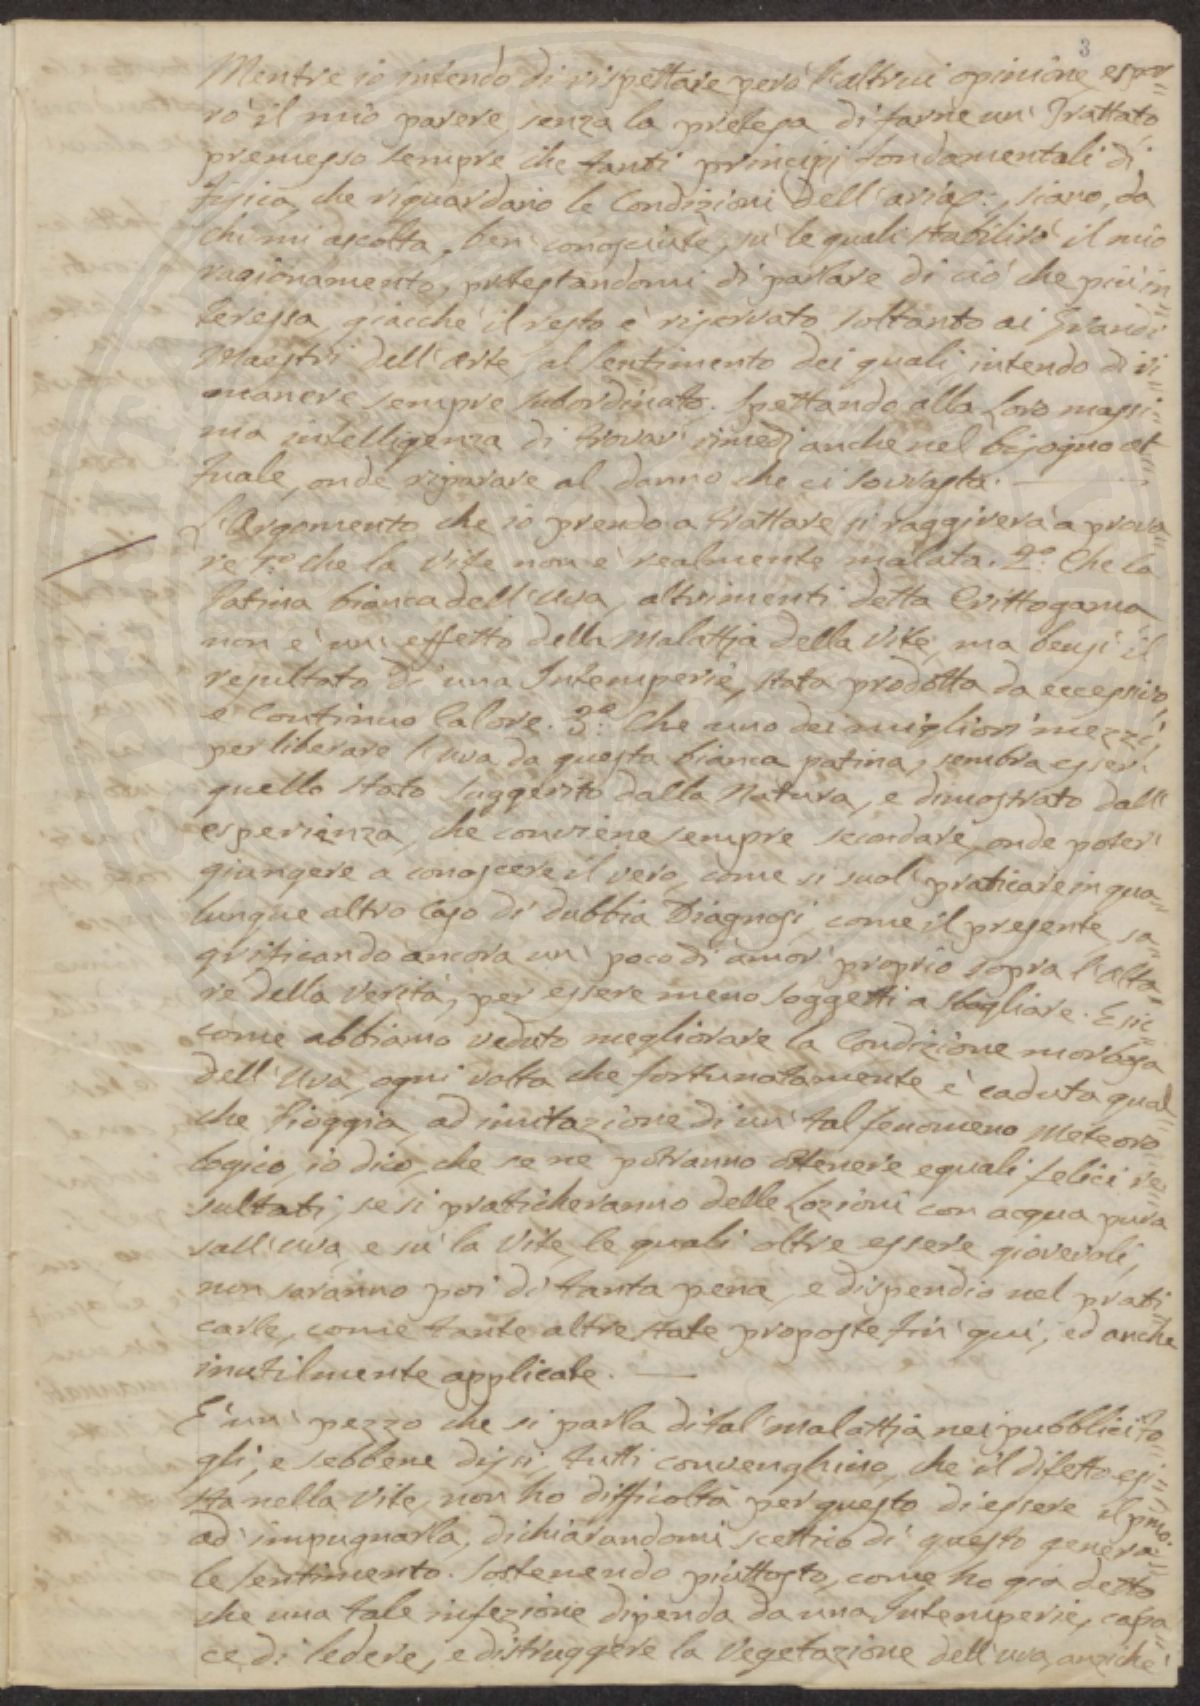 3
Mentre io intendo di rispettare però l'altrui opinione, espor=
rò il mio parere, senza la pretesa di farne un' Trattato
premesso sempre che tanti principj fondamentali di
fisica, che riguardano le Condizioni dell'aria, siano, da
chi mi ascolta, ben' conosciute, sù le quali stabilirò il mio
ragionamento, protestandomi di parlare di ciò che più in=
teressa, giacchè il resto è riservato soltanto ai Grandi
Maestri dell'arte, al sentimento dei quali, intendo di ri=
manere sempre subordinato. Spettando alla Loro massi=
ma intelligenza di trovar' rimedj anche nel bisogno at=
tuale, onde riparare al danno che ci sovrasta.
L'Argomento che io prendo a trattare si raggirerà a prova=
re 1.º che la Vite non è realmente malata. 2.º Che la
Patina bianca dell'uva, altrimenti detta Crittogama
non è un' effetto della Malattia della Vite, ma bensì il
resultato di una Intemperie, stata prodotta da eccessivo,
e Continuo Calore. 3.º Che uno dei migliori mezzi,
per liberare l'uva da questa bianca patina, sembra esser'
quello stato suggerito dalla Natura, e dimostrato dall'
esperienza, che conviene sempre secondare, onde poter'
giungere a conoscere il vero, come si suol' praticare in qua=
lunque altro Caso di dubbia Diagnosi, come il presente, sa=
grificando ancora un' poco di amor' proprio sopra l'Alta=
re della Verità, per essere meno soggetti a sbagliare. E sic=
come abbiamo veduto megliorare la Condizione morbosa
dell'Uva, ogni volta che fortunatamente è caduta qual=
che Pioggia, ad imitazione di un' tal fenomeno Meteoro=
logico, io dico, che se ne potranno ottenere eguali felici re=
sultati, se si praticheranno delle Lozioni con acqua pura
sull'uva, e sù la Vite, le quali oltre essere giovevoli,
non saranno poi di tanta pena, e dispendio nel prati=
carle, come tante altre state proposte fin' quì, ed anche
inutilmente applicate.
E' un' pezzo che si parla di tal' Malattia nei pubblici fo=
gli, e sebbene dissi, tutti convenghino, che il difetto esi=
sta nella Vite, non ho difficoltà per questo di essere il pmo.
ad' impugnarla, dichiarandomi scettico di questo genera=
le sentimento. Sostenendo piuttosto, come ho già detto
che una tale infezione dipenda da una Intemperie, capa=
ce di ledere, e distruggere la Vegetazione dell'uva, anzichè